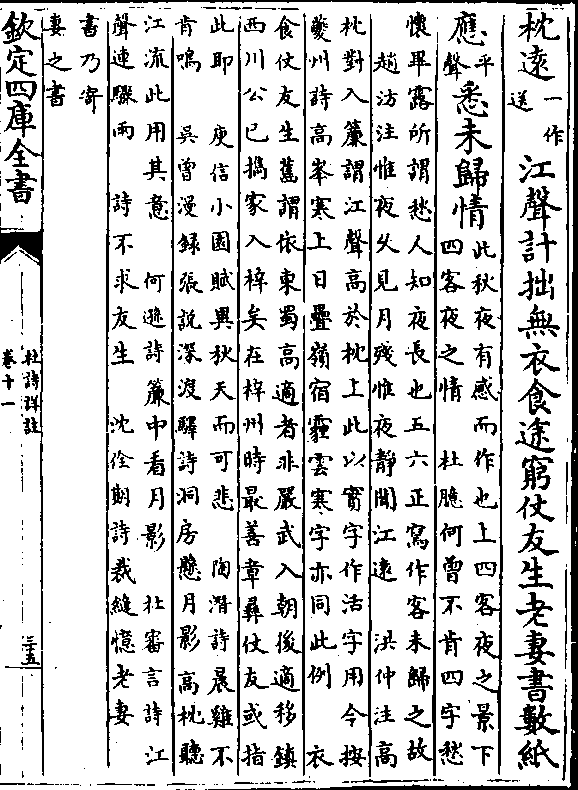 枕遠一作送江聲計拙無衣食途窮仗友生老妻書數紙
應平聲悉未歸情
此秋夜有感而作也上四客夜之景下
四客夜之情　杜臆何曾不肯四字愁
懷畢露所謂愁人知夜長也五六正寫作客未歸之故
趙汸注惟夜久見月殘惟夜靜聞江遠　洪仲注高
枕對入簾謂江聲高於枕上此以實字作活字用今按
夔州詩高峯寒上日疊嶺宿霾雲寒字亦同此例　衣
食仗友生舊謂依東蜀高適者非嚴武入朝後適移鎮
西川公已攜家入梓矣在梓州時最善章彝仗友或指
此耶　庾信小園賦異秋天而可悲　陶潛詩晨雞不
肯鳴　吳曾漫録張說深渡驛詩洞房懸月影高枕聽
江流此用其意　何遜詩簾中看月影　杜審言詩江
聲連驟雨　詩不求友生　沈佺期詩裁縫憶老妻
書乃寄
妻之書
欽定四庫全書
杜詩詳註
卷十一
三五